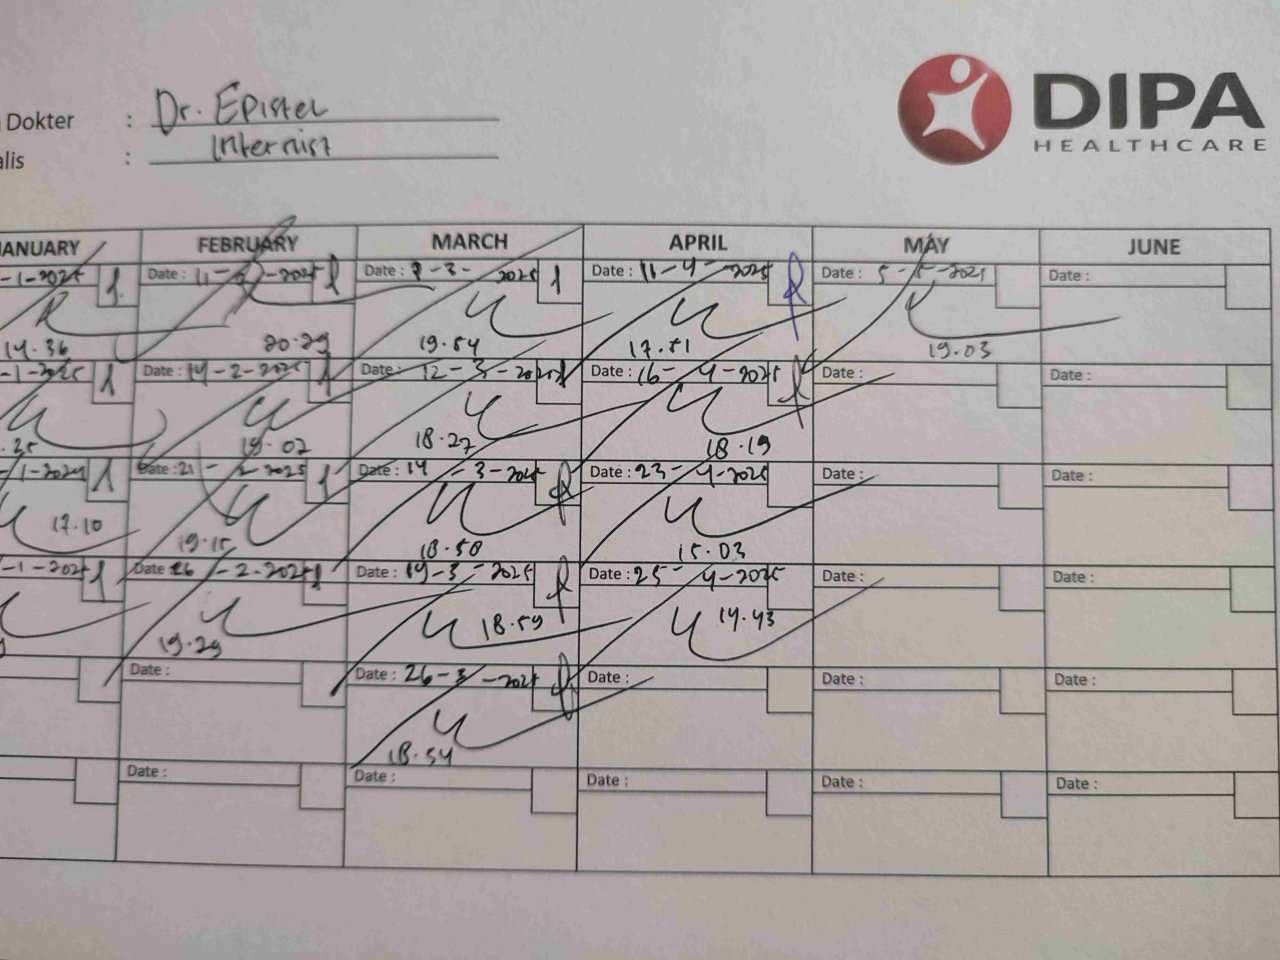 DIPA
HEALTHCARE
Dokter : Dr. Epistel
alis : Internist
ANUARY FEBRUARY MARCH APRIL MAY JUNE
-1-2025 Date : 11-2-2025 Date : 7-3-2025 Date : 11-4-2025 Date : 5-5-2025 Date :
14.36 20.29 19.54 17.51 19.03
-1-2025 Date : 14-2-2025 Date : 12-3-2025 Date : 16-4-2025 Date : Date :
.25 19.02 18.27 18.19
-1-2025 Date : 21-2-2025 Date : 14-3-2025 Date : 23-4-2025 Date : Date :
17.10 19.15 18.50 15.03
-1-2025 Date : 26-2-2025 Date : 19-3-2025 Date : 25-4-2025 Date : Date :
19.29 18.59 14.43
Date : Date : 26-3-2025 Date : Date : Date :
18.54
Date : Date : Date : Date : Date :